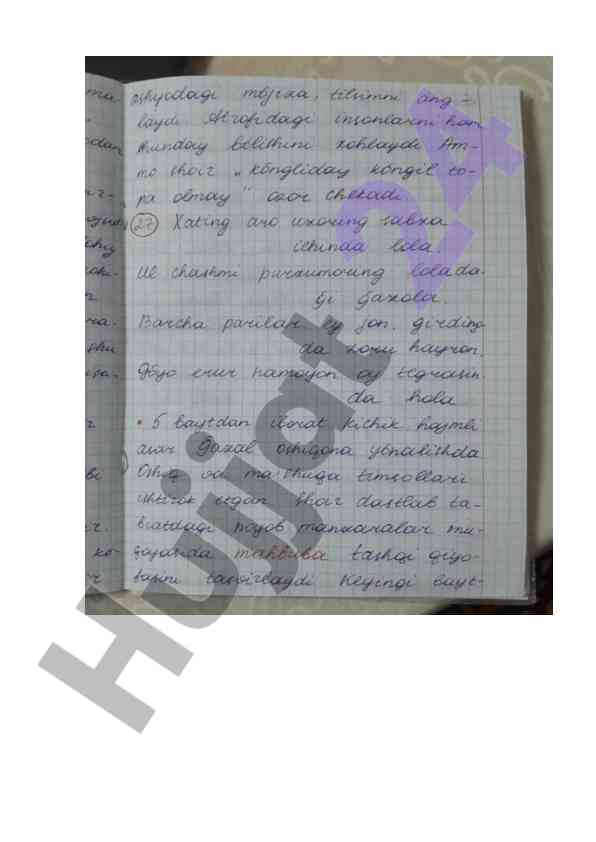 ashyodagi mo'jiza, tilsimni ang-
laydi Atrofidagi insonlarni ham
shunday bo'lishini xohlaydi Am-
mo shoir „ko'ngliday ko'ngil to-
pa olmay" ozor chekadi
27 Xating aro uzoring sabza
ichinda lola.
Ul chashmi purxumoring lolada-
gi g'azola.
Barcha parilar, ey jon, girding-
da zoru hayron,
Go'yo erur namoyon oy tegrasin-
da hola
• 5 baytdan iborat kichik hajmli
asar G'azal oshiqona yo'nalishda
Oshiq va ma'shuqa timsollari
ishtirok etgan Shoir dastlab ta-
biatdagi noyob manzaralar mu-
qoyasida mahbuba tashqi qiyo-
fasini tasvirlaydi Keyingi bayt-
Hujjat 24